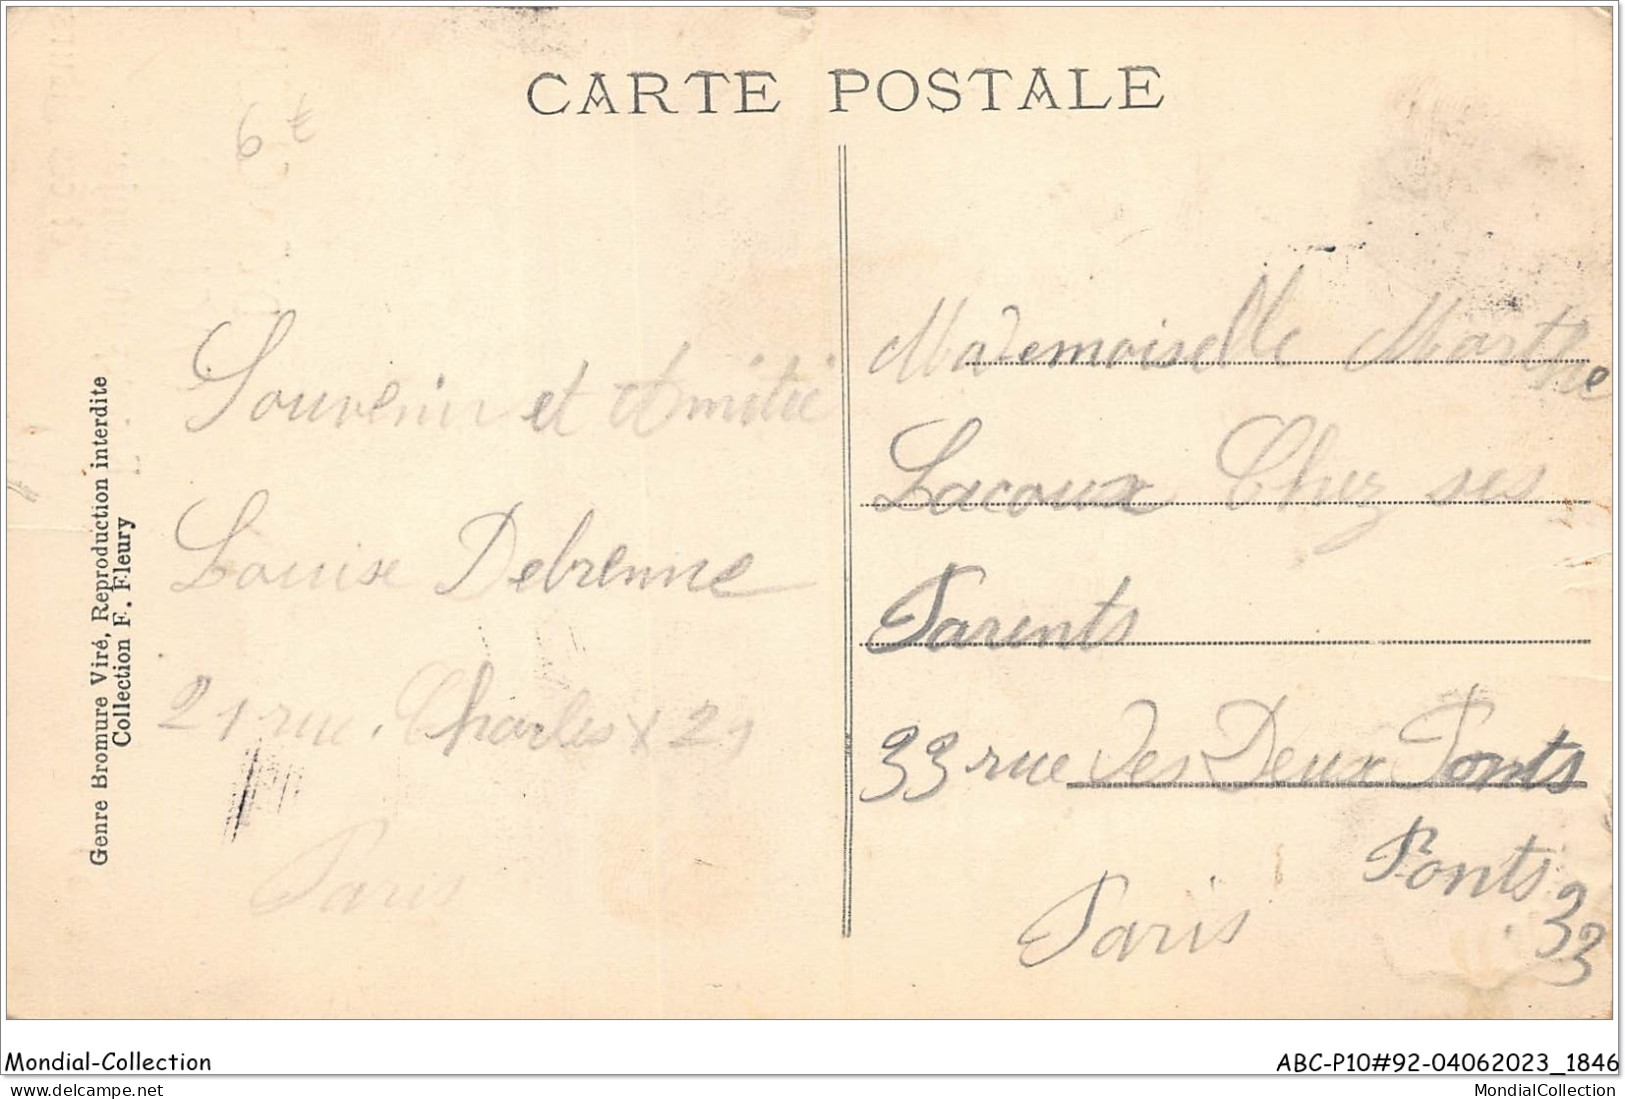 CARTE POSTALE
6 €
Souvenir et Amitié
Louise Debrenne
21 rue. Charles X 21
Paris
Genre Bromure Viré, Reproduction interdite
Collection F. Fleury
Mademoiselle Marthe
Lacoux Chez ses
Parents
33 rue des Deux Ponts
Ponts 33
Paris
Mondial-Collection
ABC-P10#92-04062023_1846
delcampe.net
MondialCollection